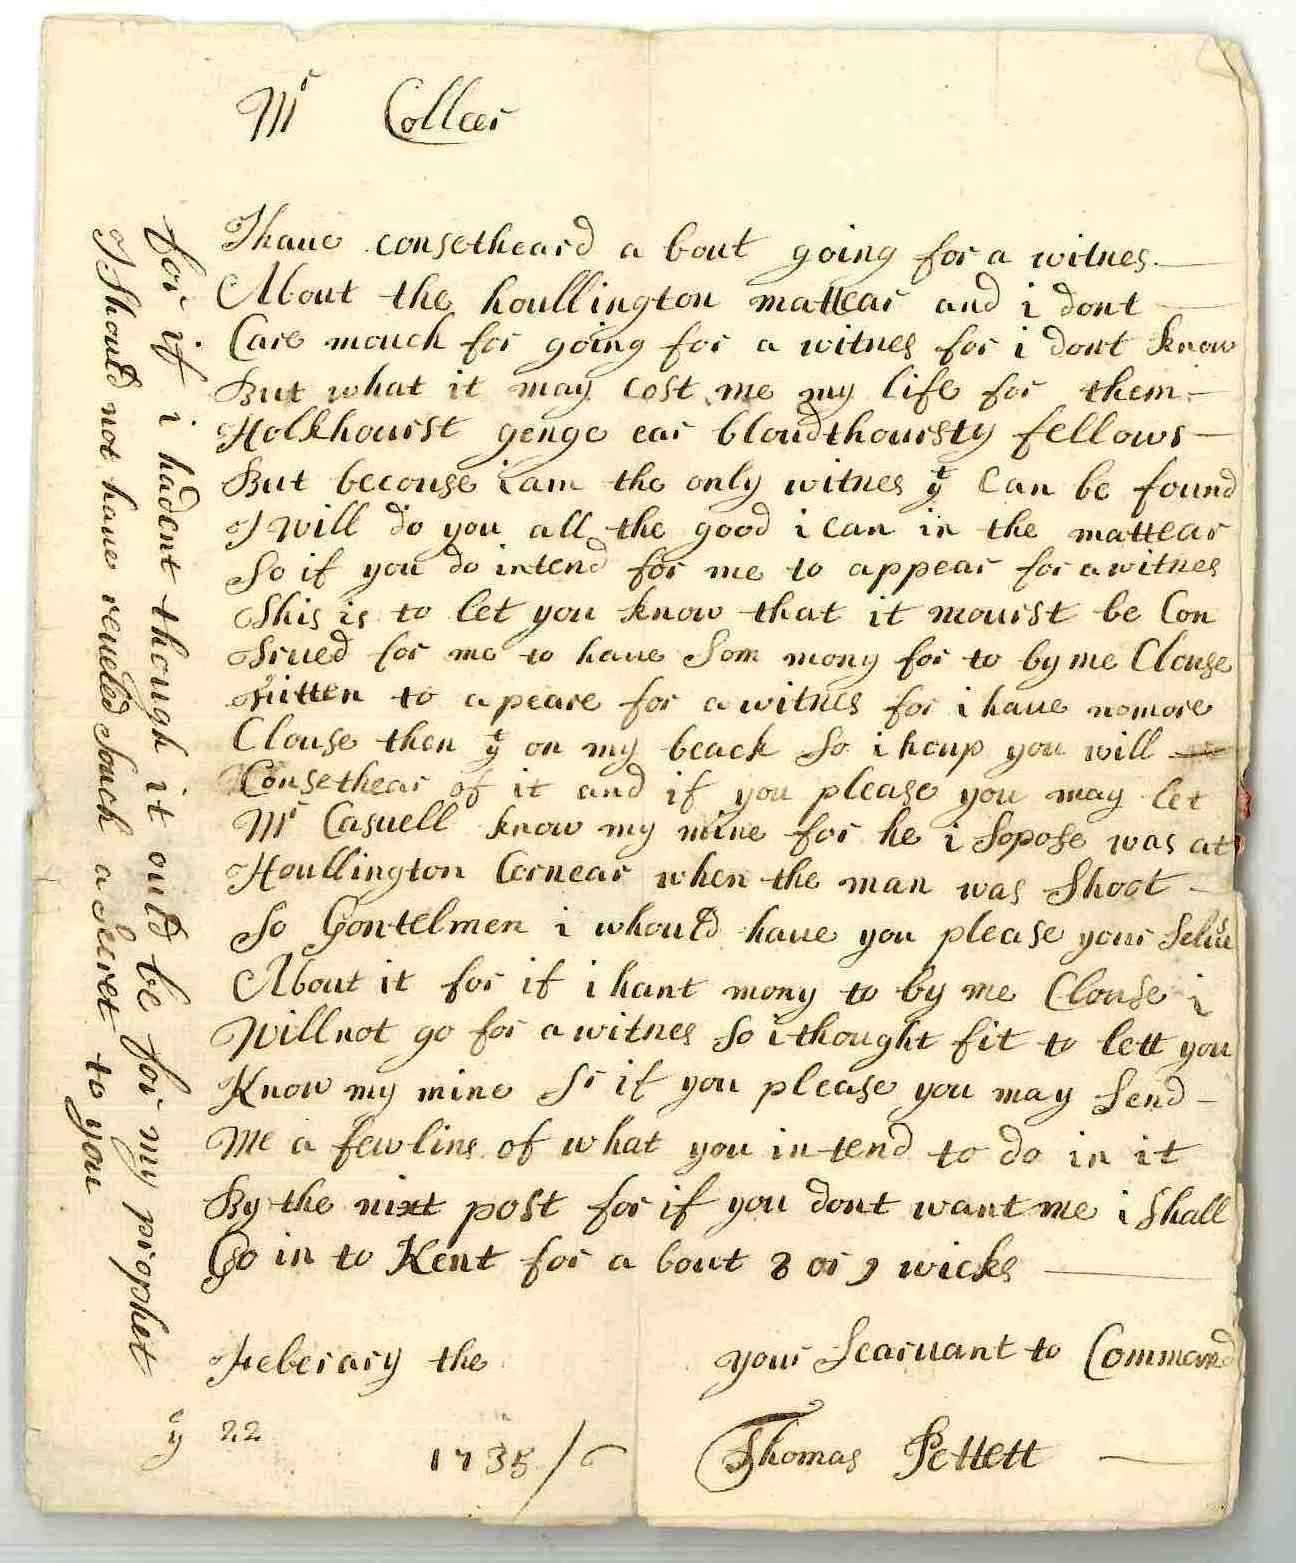 Mr Colleer
I haue consetheard a bout going for a witnes
About the houllington mattear and i dont
Care mouch for going for a witnes for i dont know
But what it may cost me my life for them
Holkhourst genge ear bloudthoursty fellows
But becouse i am the only witnes yt Can be found
I will do you all the good i can in the mattear
So if you do intend for me to appear for a witnes
This is to let you know that it mourst be Con
Srued for me to haue Som mony for to by me Clouse
fitten to apeare for a witnes for i haue nomore
Clouse then yt on my beack So i houp you will
Consethear of it and if you please you may let
Mr Casuell know my mine for he i Sopose was at
Houllington Cornear when the man was Shoot
So Gentelmen i whould haue you please your Selu
About it for if i hant mony to by me Clouse i
Will not go for a witnes So i thought fit to lett you
Know my mine So if you please you may Send
Me a few line of what you intend to do in it
By the nixt post for if you dont want me i Shall
Go in to Kent for a bout 8 or 9 wicks
Feberary the your Searuant to Command
ye 22 1735/6 Thomas Pettett
for if i hadent though it ould be for my prophet
I Should not haue reueled Souch a Secret to you